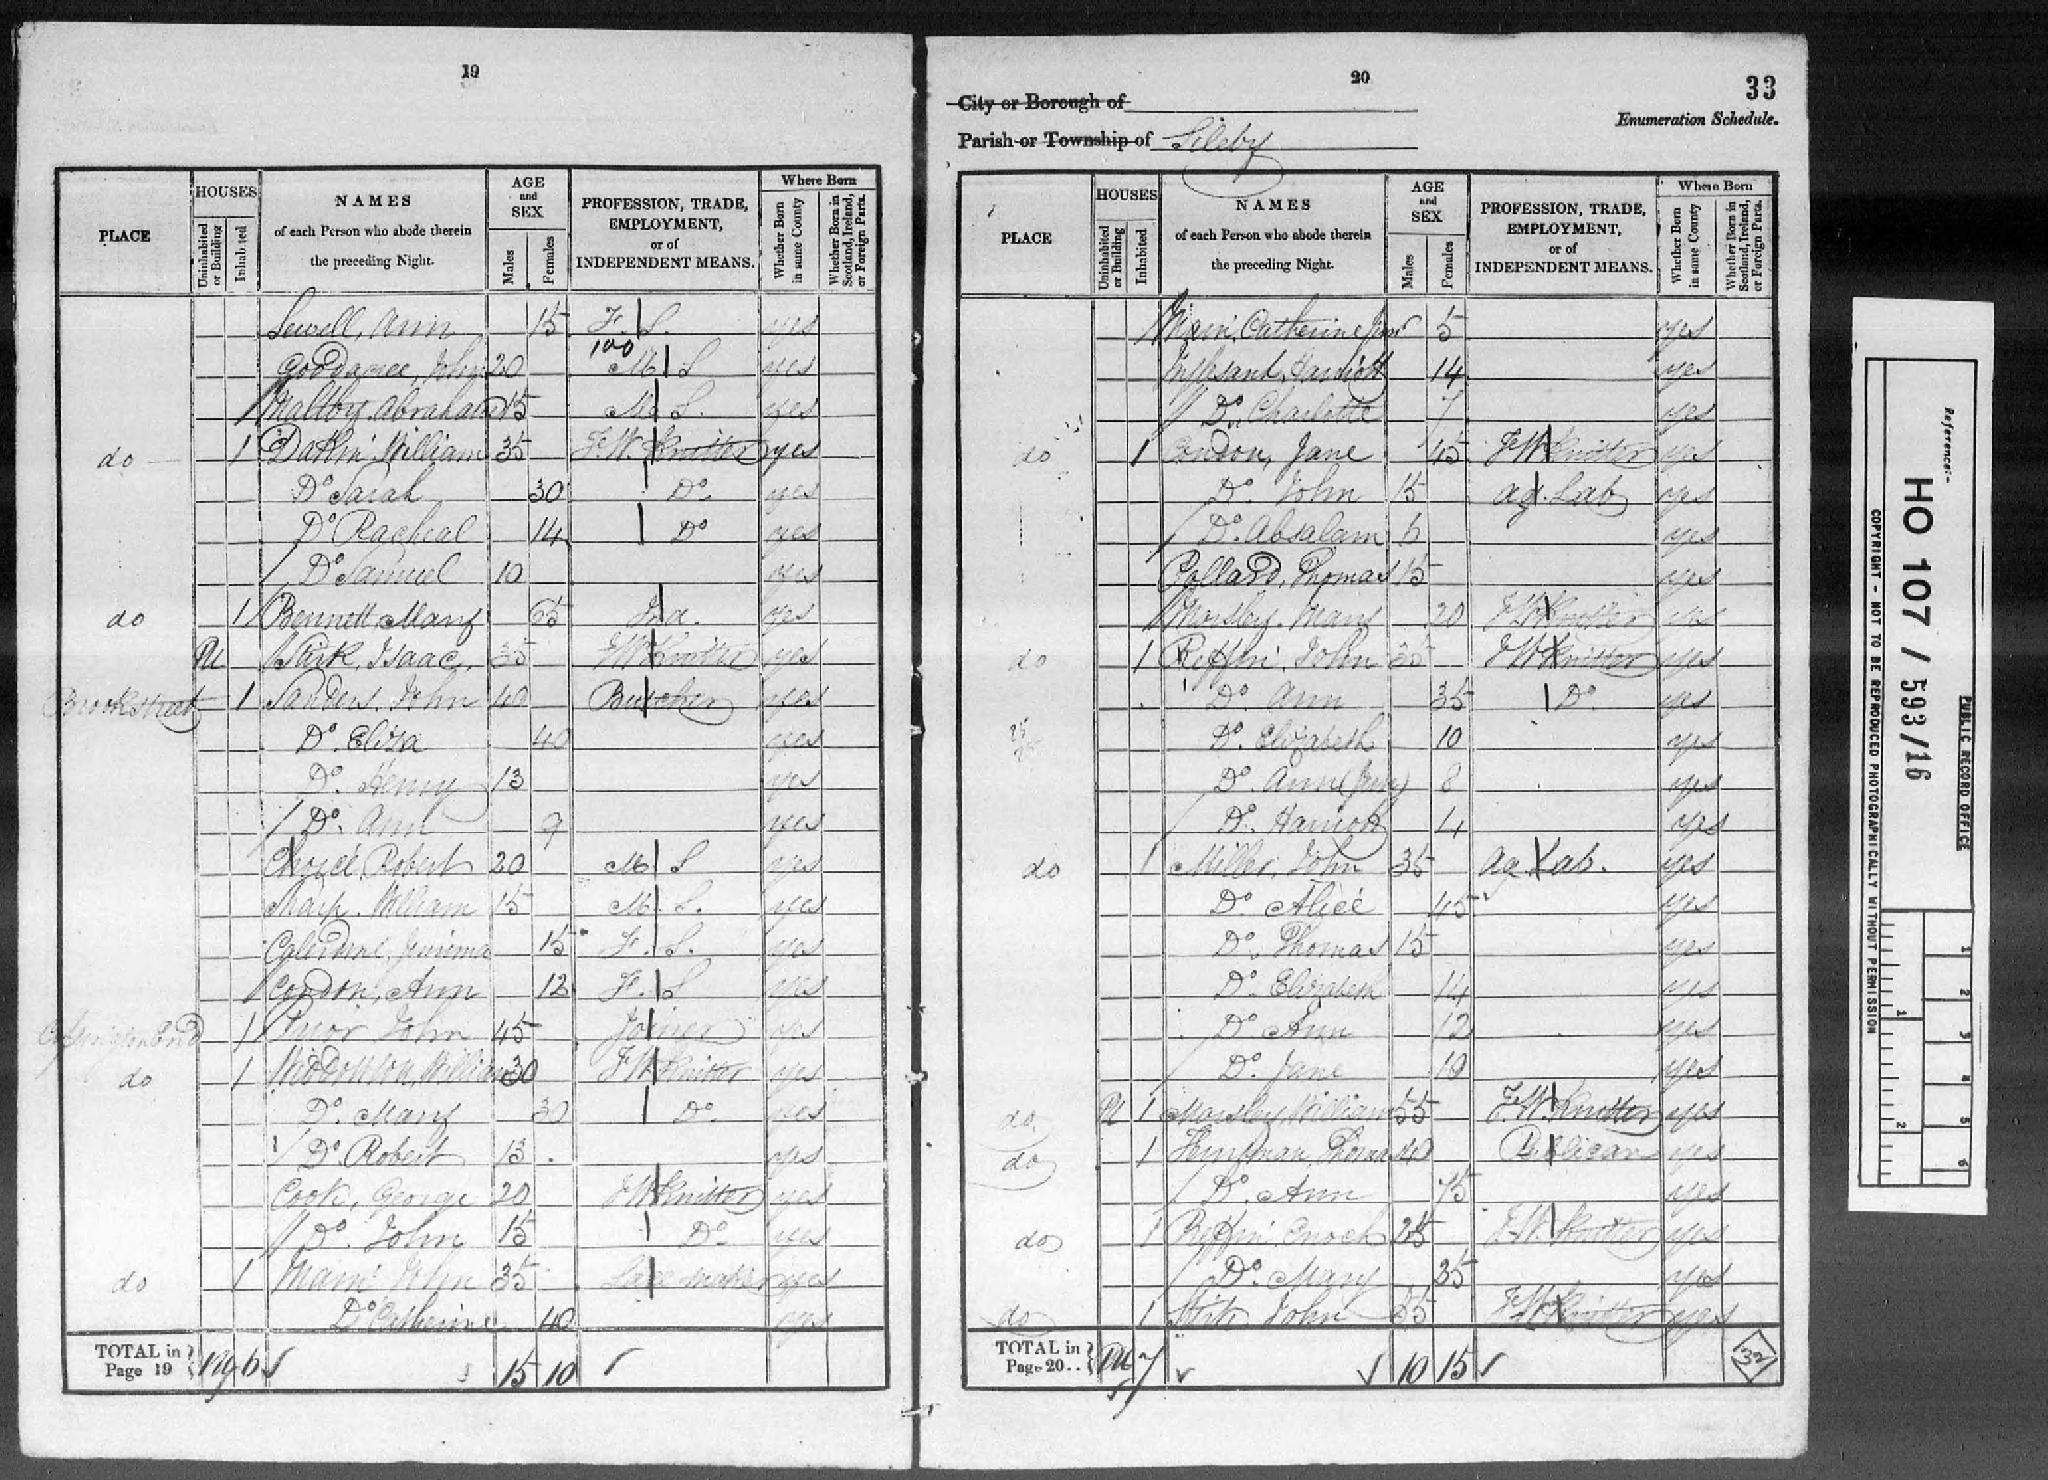 19
PLACE
HOUSES
Uninhabited or Building
Inhabited
NAMES
of each Person who abode therein
the preceding Night.
AGE
and
SEX
Males
Females
PROFESSION, TRADE,
EMPLOYMENT,
or of
INDEPENDENT MEANS.
Where Born
Whether Born in same County
Whether Born in Scotland, Ireland, or Foreign Parts.
Sewell, Ann 15 F. S. yes
100
John 20 M S yes
Maltby, Abraham 15 M. S. yes
do 1 Dakin William 35 F.W. Knitter yes
Do Sarah 30 Do. yes
Do Racheal 14 Do yes
Do Samuel 10 yes
do 1 Bennett Mary 65 yes
Isaac, 35 FW Knitter yes
Brook street 1 Sanders, John 40 Butcher yes
Do. Eliza 40 yes
Do. Henry 13 yes
Do. Ann 9 yes
Robert 20 M S yes
William 15 M. S. yes
15 F. S. yes
Condon, Ann 12 F. S yes
1 Pryor John 45 Joiner yes
do 1 Widdowson, William 30 F.W. Knitter yes
Do. Mary 30 Do. yes
Do Robert 13 yes
Cook, George 20 FW Knitter yes
Do. John 15 Do. yes
do 1 John 35 Lace maker yes
Do Catherine 40 yes
TOTAL in
Page 19
6 15 10
20
33
City or Borough of
Enumeration Schedule.
Parish or Township of Sileby
PLACE
HOUSES
Uninhabited or Building
Inhabited
NAMES
of each Person who abode therein
the preceding Night.
AGE
and
SEX
Males
Females
PROFESSION, TRADE,
EMPLOYMENT,
or of
INDEPENDENT MEANS.
Where Born
Whether Born in same County
Whether Born in Scotland, Ireland, or Foreign Parts.
Catherine Junr 5 yes
14 yes
Do. Charlotte 7 yes
do 1 Condon, Jane 45 FW Knitter yes
Do. John 15 ag. Lab yes
Do. Absalam 6 yes
Pollard, Thomas 15 yes
Morsley, Mary 20 FW Knitter yes
do 1 John 35 FW Knitter yes
Do. Ann 35 Do. yes
Do. Elizabeth 10 yes
Do. Ann (Jun) 8 yes
Do. Harriott 4 yes
do 1 Miller, John 35 Ag. Lab. yes
Do. Alice 45 yes
Do. Thomas 15 yes
Do. Elizabeth 14 yes
Do. Ann 12 yes
Do. Jane 10 yes
do. 1 Morsley, William 55 F.W. Knitter yes
do 1 Thomas 40 Publican yes
Do. Ann 75 yes
do 1 Enoch 25 F.W. Knitter yes
Do. Mary 35 yes
do 1 John 55 FW Knitter yes
TOTAL in
Page 20..
7 10 15
32
Reference:-
HO 107 / 593/16
PUBLIC RECORD OFFICE
COPYRIGHT - NOT TO BE REPRODUCED PHOTOGRAPHICALLY WITHOUT PERMISSION
1 2 3 4 5 6
1 2